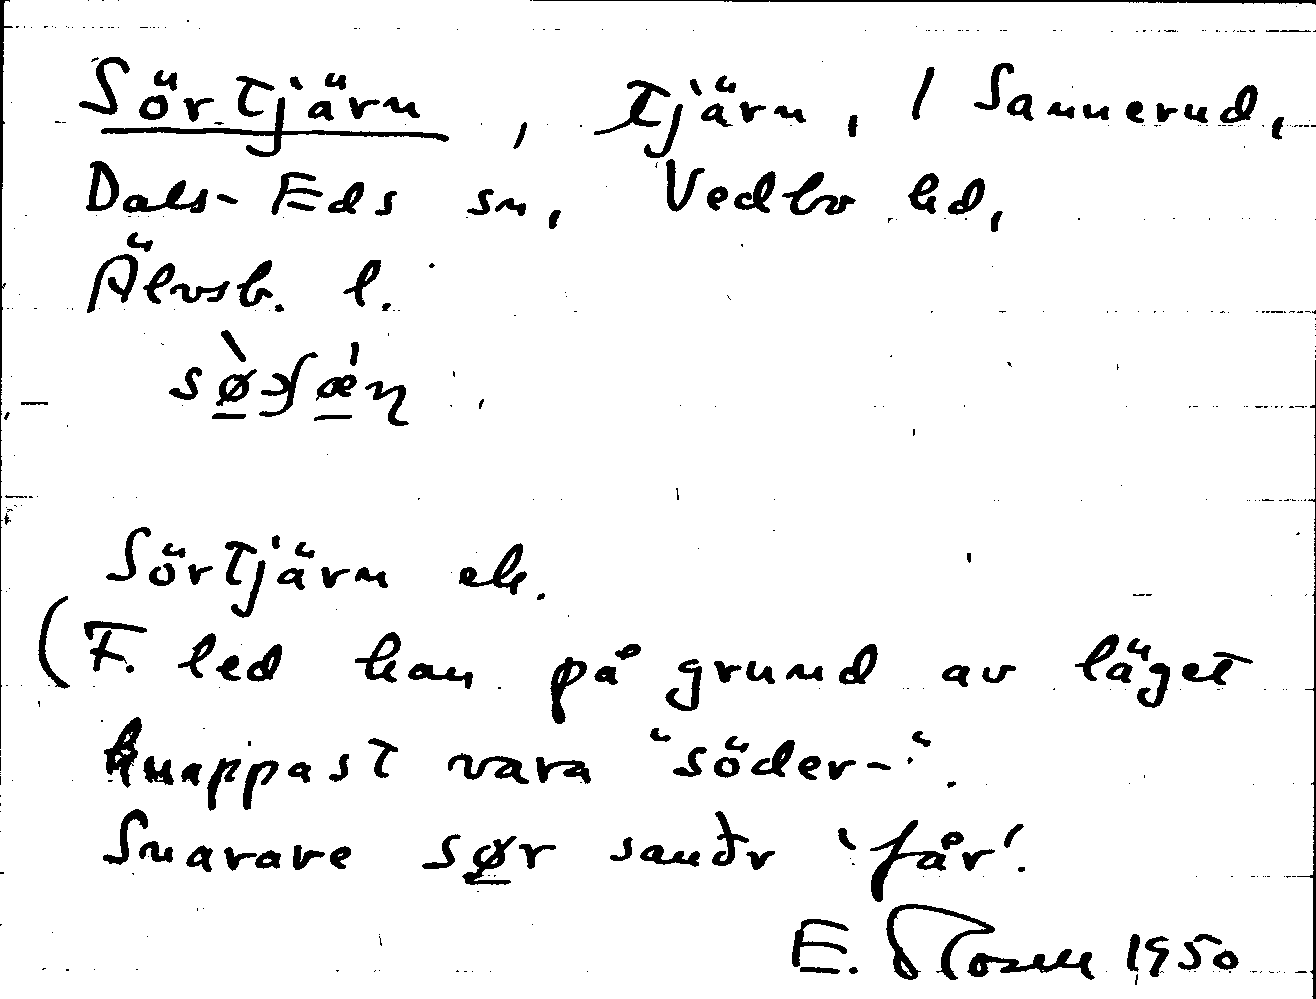 Sörtjärn, tjärn, / Sannerud,
Dals-Eds sn, Vedbo hd,
Älvsb. l.
Sörtjärn ek.
(F. led kan på grund av läget
knappast vara "söder-".
Snarare sør sauðr 'får'.
E. Rosell 1950